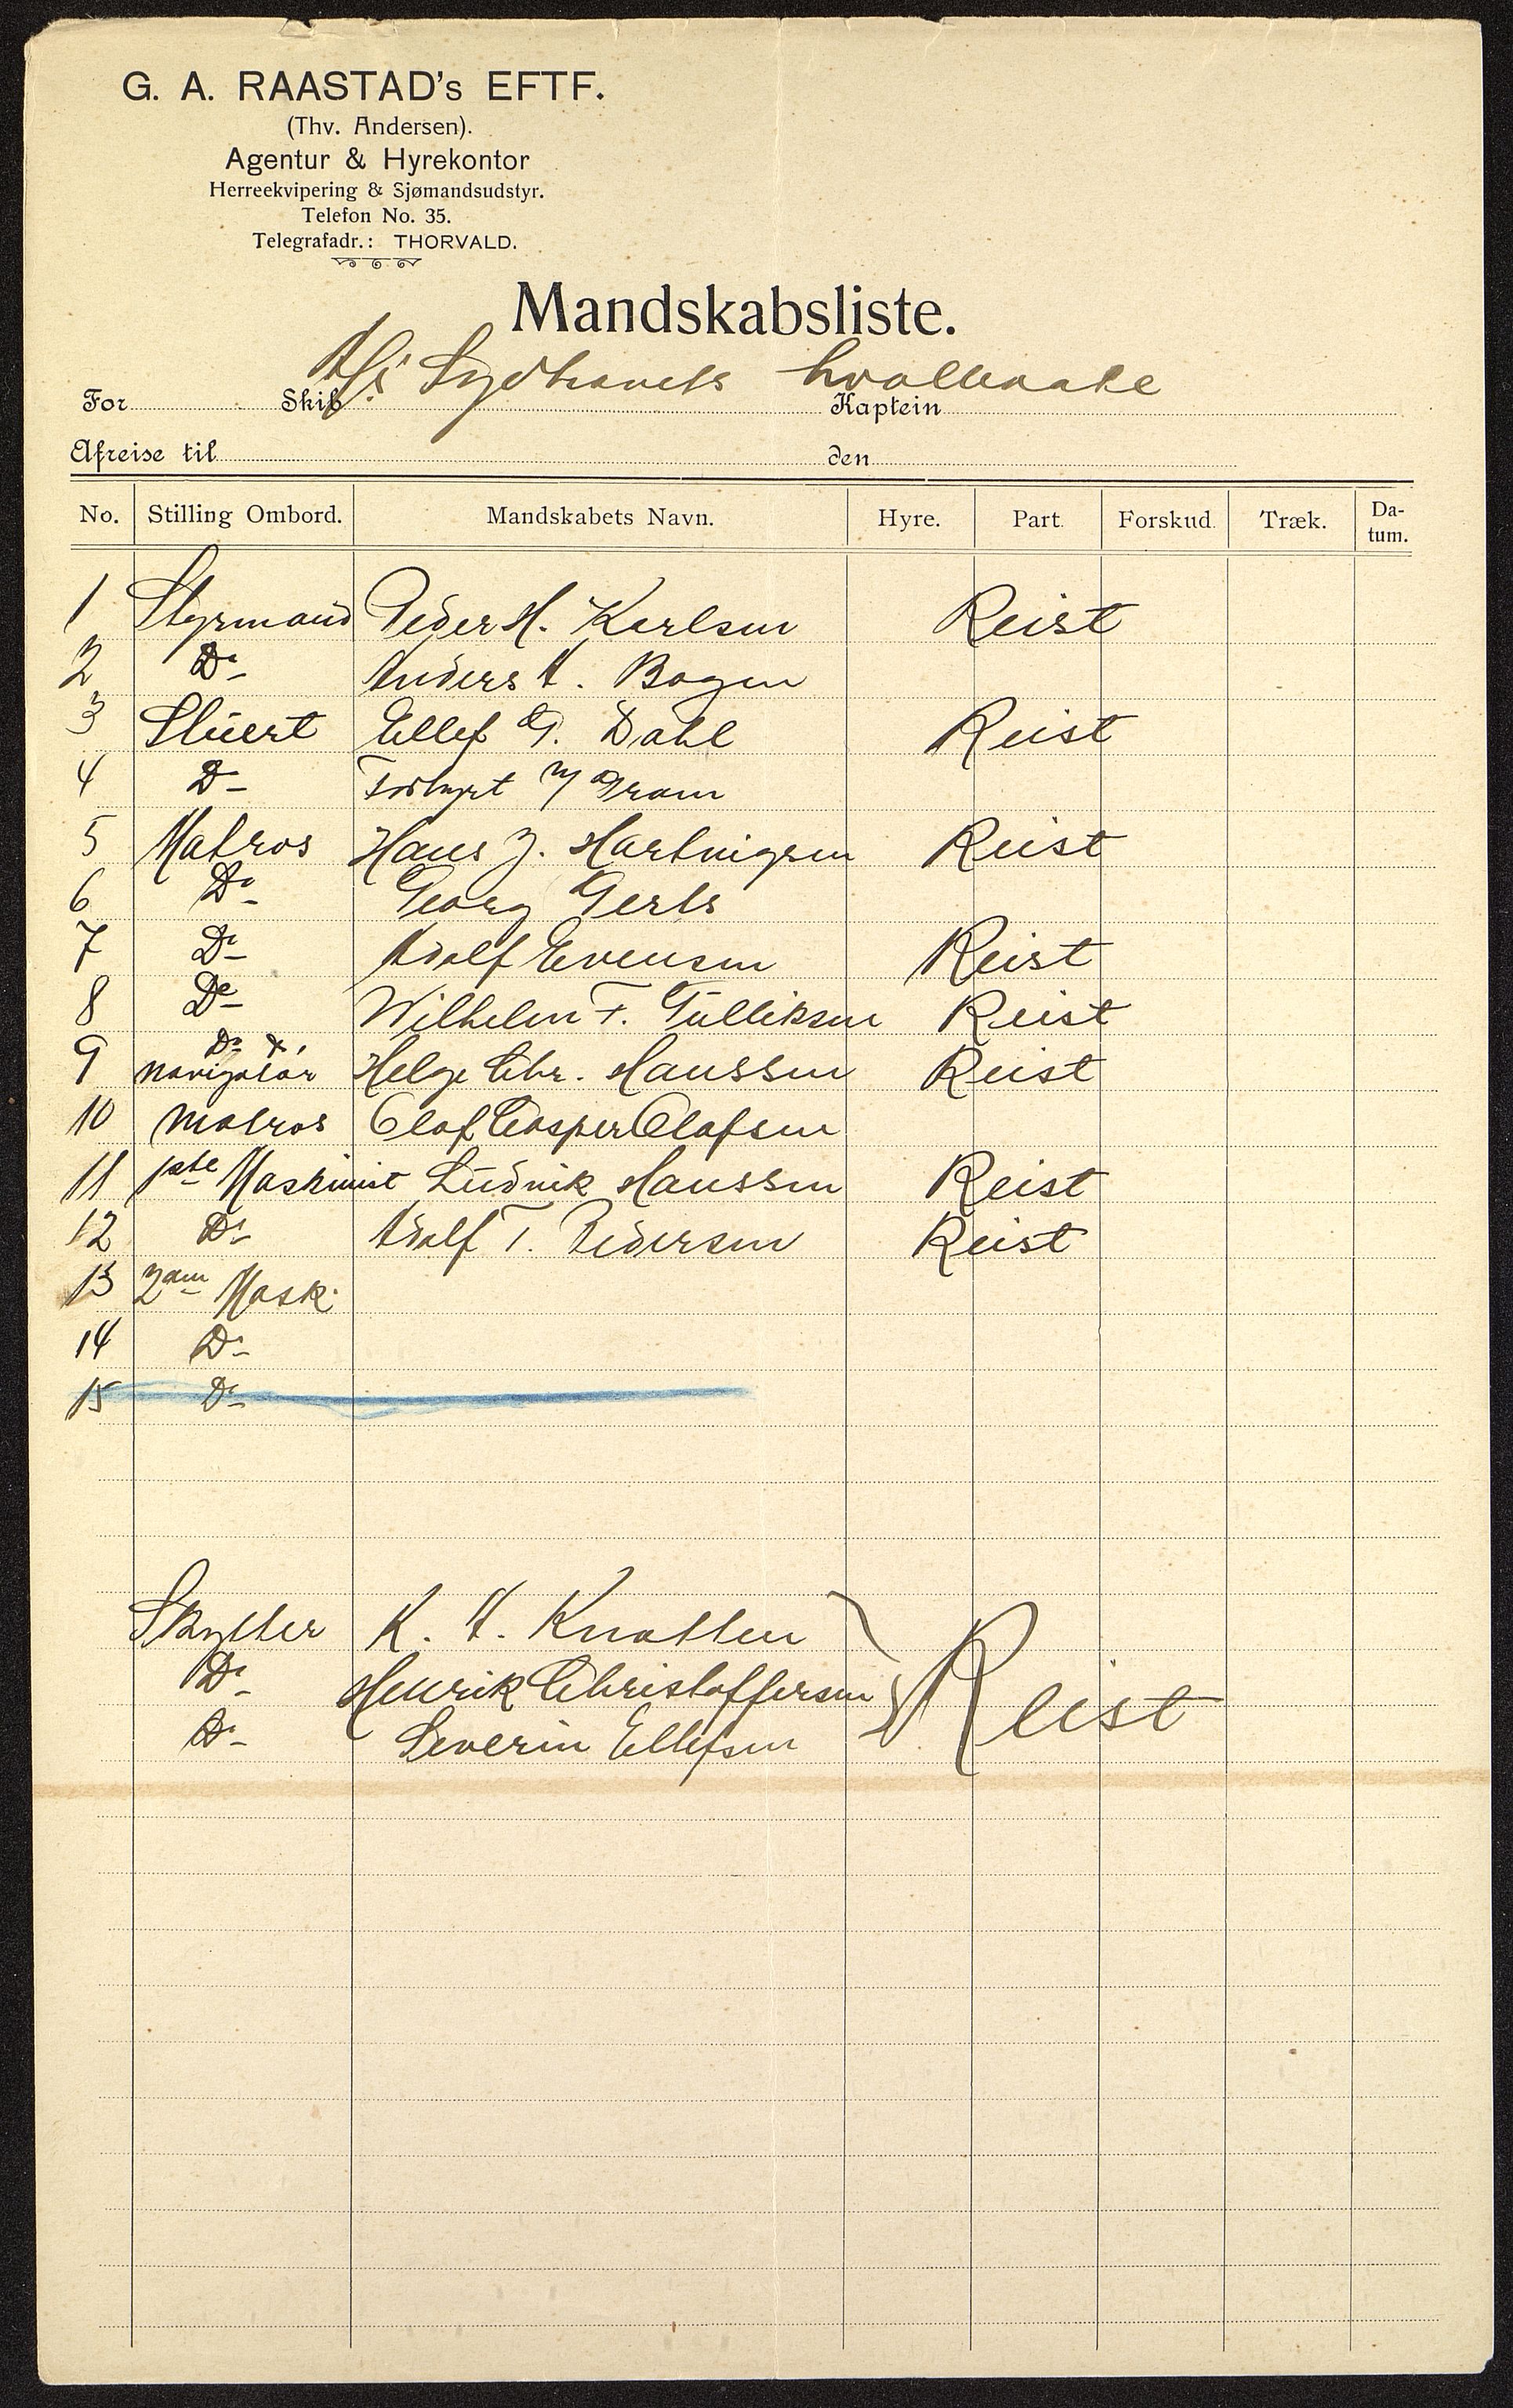 G. A. RAASTAD's EFTF.
(Thv. Andersen).
Agentur & Hyrekontor
Herreekvipering & Sjømandsudstyr.
Telefon No. 35.
Telegrafadr.: THORVALD.
Mandskabsliste.
For Skib A/S Sydhavets hvalbaate Kaptein
Afreise til den
No. Stilling Ombord. Mandskabets Navn. Hyre. Part. Forskud. Træk. Da-tum.
1 Styrmand Peder H. Karlsen Reist
2 Do Anders A. Bogen
3 Stuert Ellef G. Dahl Reist
4 Do Forhyrt Gram
5 Matros Hans J. Hartvigsen Reist
6 Do Georg Gerts
7 Do Adolf Evensen Reist
8 Do Wilhelm F. Gulliksen Reist
9 Do & navigatør Helge Chr. Hanssen Reist
10 Matros Olaf Casper Olafsen
11 1ste Maskinist Ludvik Hanssen Reist
12 Do Adolf T. Pedersen Reist
13 2den Mask.
14 Do
15 Do
Skytter K. A. Knatten
Do Henrik Christoffersen Reist
Do Severin Ellefsen